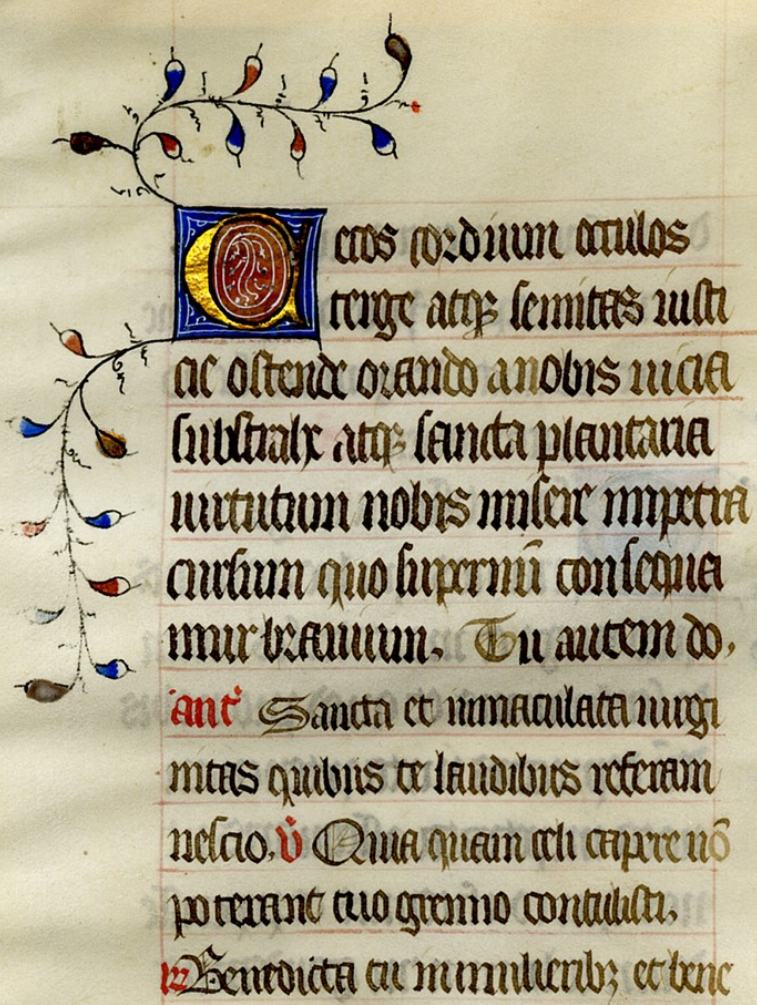 Cecos cordium oculos
terge atqꝫ semitas iusti
cie ostende orando a nobis uicia
substrahe atqꝫ sancta plantaria
uirtutum nobis misere impetra
cursum quo supernū consequa
mur brauium. Tu autem do.
ant̉ Sancta et inmaculata uirgi
nitas quibus te laudibus referam
nescio. v̉ Quia quem celi capere nō
poterant tuo gremio contulisti.
Benedicta tu in mulieribꝫ et bene